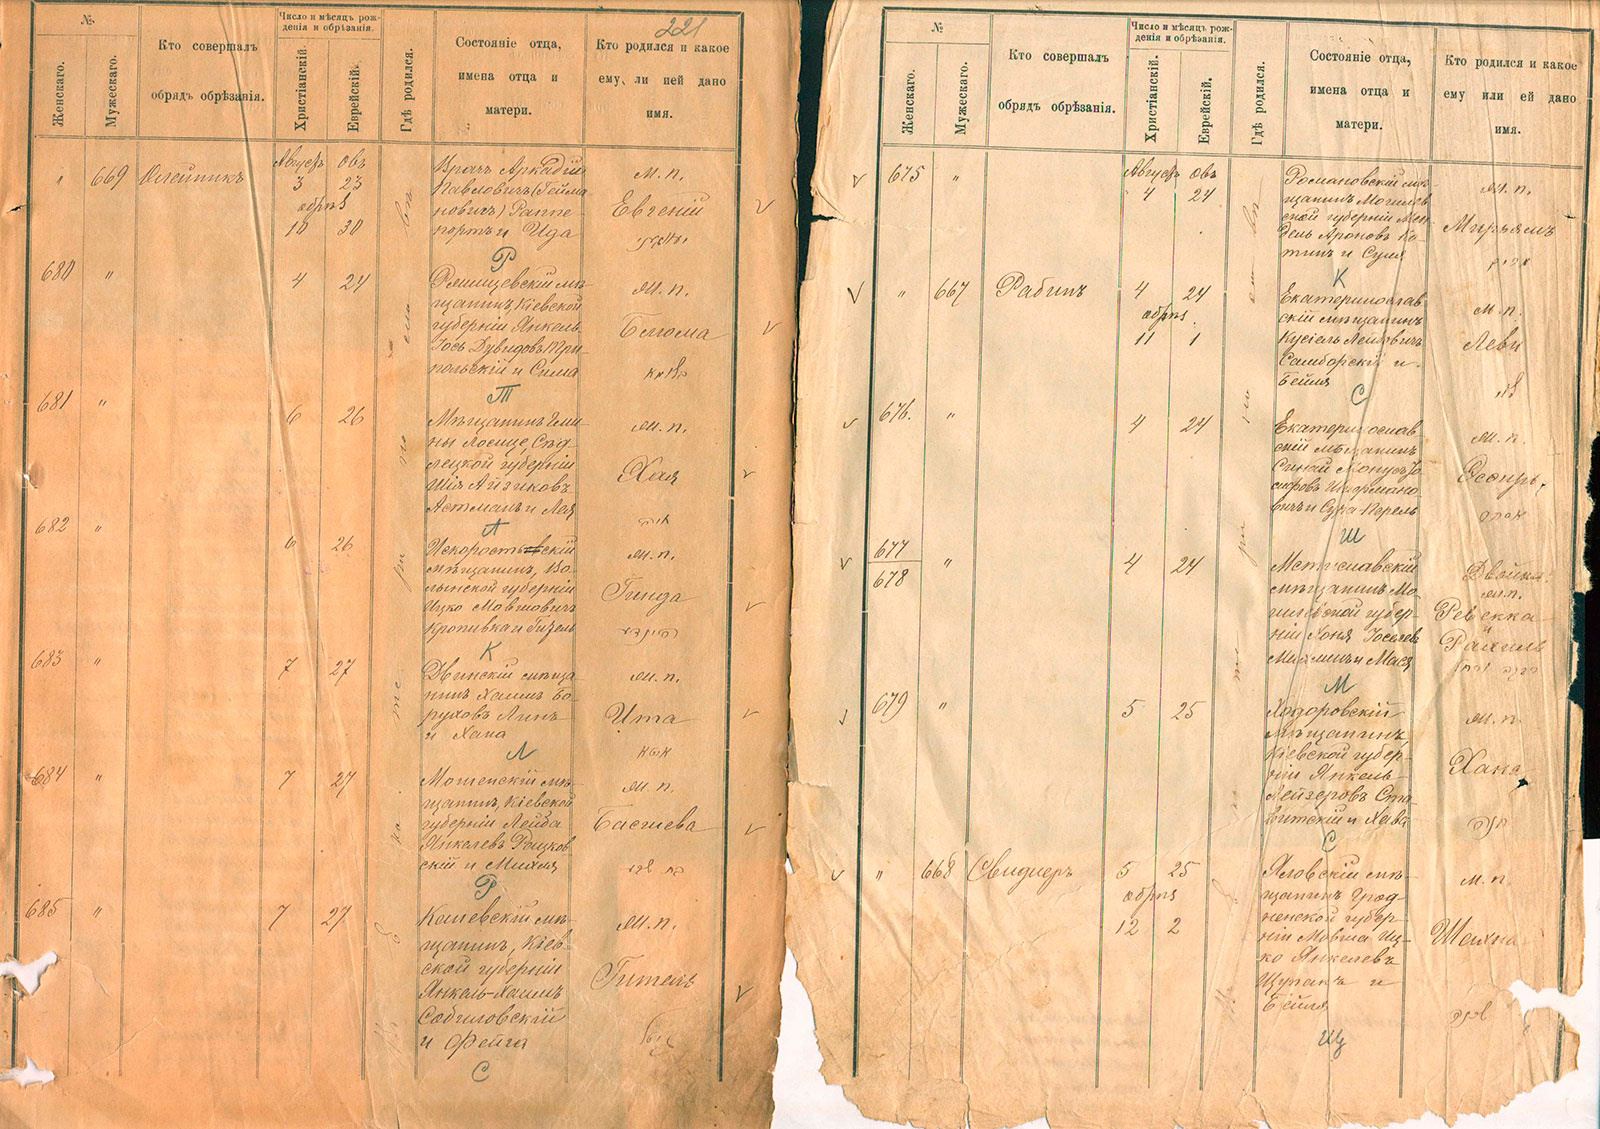 221
№
Женскаго.
Мужескаго.
Кто совершалъ
обрядъ обрѣзанія.
Число и мѣсяцъ рож-
денія и обрѣзанія.
Христіанскій.
Еврейскій.
Гдѣ родился.
Состояніе отца,
имена отца и
матери.
Кто родился и какое
ему, ли ней дано
имя.
"
669
Олейникъ
Августъ
Овъ
3
23
обрѣз
10
30
Врачъ Аркадій
Павловичъ (Гейма
новичъ) Раппе-
портъ и Ида
Р
м. п.
Евгеній
680
"
4
24
щанинъ, Кіевской
губерніи Янкель
Іось Дувидовъ Три-
польскій и Сима
Т
м. п.
Блюма
681
"
6
26
ны Лосице, Сѣд
лецкой губерніи
Шія Айзиковъ
Астманъ и Лея
А
м. п.
Хая
682
"
6
26
Искоростьевскій
мѣщанинъ, Во-
лынской губерніи
Ицко Мовшовичъ
Кропивка и Гизель
К
м. п.
Гинда
683
"
7
27
Двинскій мѣща
нинъ Хаимъ Бо-
руховъ Линъ
и Хана
Л
м. п.
Ита
אטא
684
"
7
27
Мошенскій мѣ-
щанинъ, Кіевской
губерніи Лейба
Янкелевъ Рацков
скій и Михля
Р
м. п.
Басшева
685
"
7
27
Кашевскій мѣ-
щанинъ, Кіев-
ской губерніи
Янкель-Хаимъ
Собиловскій
и Фейга
С
м. п.
Гитель
№
Женскаго.
Мужескаго.
Кто совершалъ
обрядъ обрѣзанія.
Число и мѣсяцъ рож-
денія и обрѣзанія.
Христіанскій.
Еврейскій.
Гдѣ родился.
Состояніе отца,
имена отца и
матери.
Кто родился и какое
ему или ей дано
имя.
675
"
Августъ
Овъ
4
24
Романовскій мѣ-
щанинъ Могилев
ской губерніи Мен
дель Ароновъ Ко-
тинъ и Суля
К
м. п.
Мирьямъ
"
667
Рабинъ
4
24
обрѣз.
11
1
Екатеринослав
скій мѣщанинъ
Кусіель Лейбовичъ
Самборскій и
Бейля
С
м. п.
Леви
לוי
676.
"
4
24
Екатеринослав
скій мѣщанинъ
сифовъ Шерманo
вичъ и Сура-Перель
Ш
м. п.
Эсѳирь
אסתר
677
678
"
4
24
Мстиславскій
мѣщанинъ Мо-
гилевской губер-
ніи Хоня Іоселевъ
Милминъ и Мася
М
Двойня:
м. п.
Ревекка
Рахиль
רבקה
רחל
679
"
5
25
Ходоровскій
мѣщанинъ,
Кіевской губер-
ніи Янкель
Лейзеровъ Ста-
витскій и Хава
С
м. п.
Хана
חנה
"
668
Свидлеръ
5
25
обрѣз
12
2
Яловскій мѣ-
щанинъ Грод-
ненской губер-
ніи Мовша Иц-
ко Янкелевъ
Щупакъ и
Бейля
Щ
м. п.
Шахна